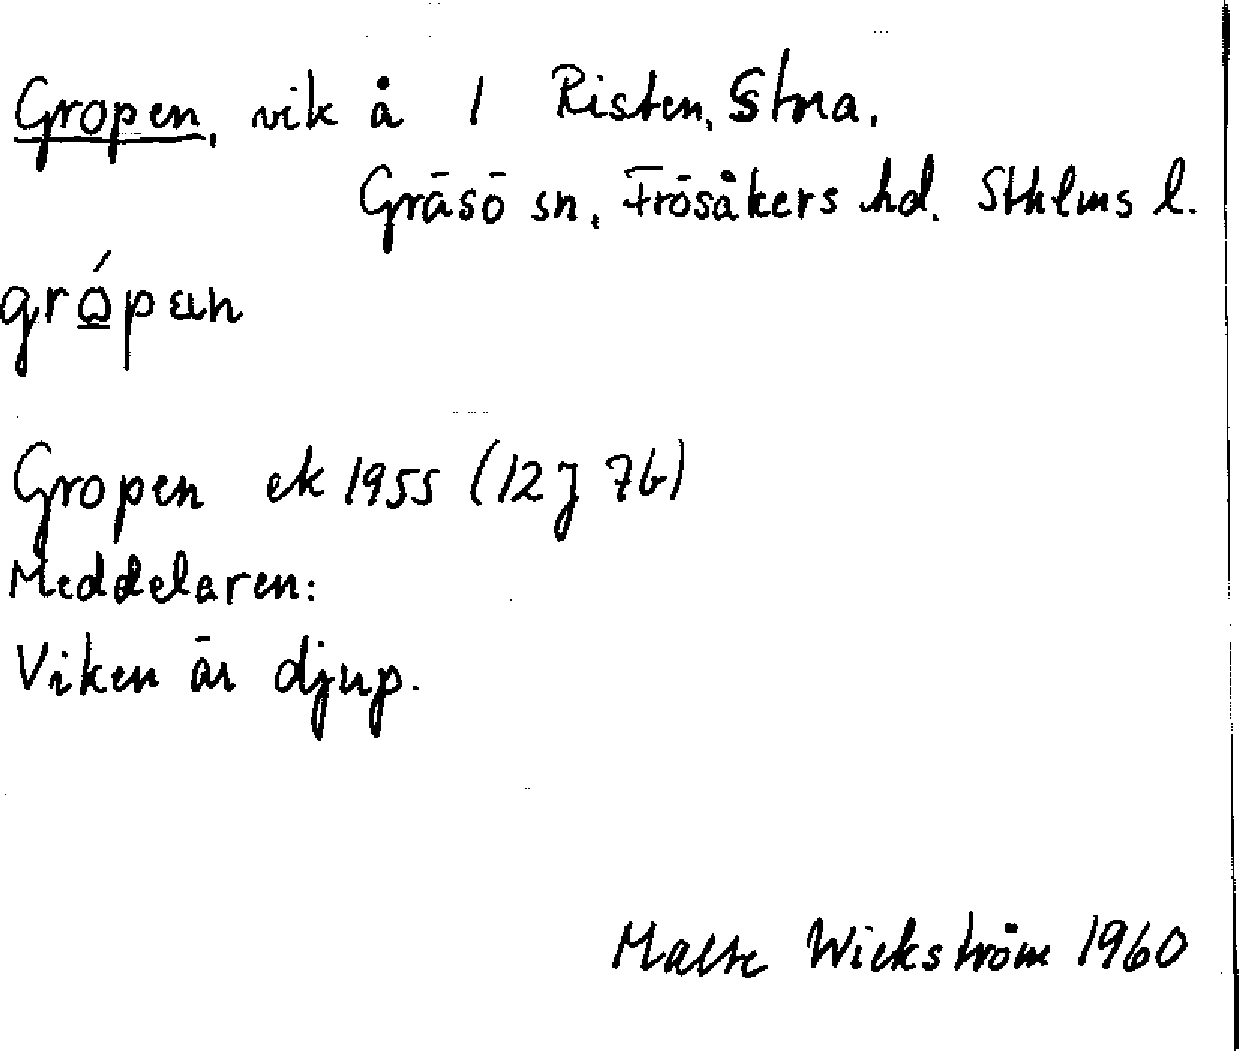 Gropen, vik å 1 Risten, Stora,
Gräsö sn, Frösåkers hd. Sthlms l.
Gropen ek 1955 (12j 7b)
Meddelaren:
Viken är djup.
Malte Wickström 1960